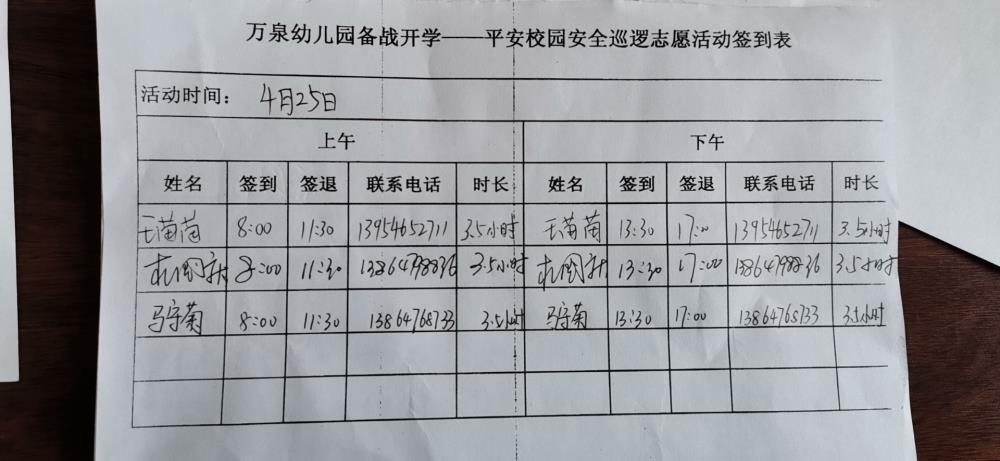 万泉幼儿园备战开学——平安校园安全巡逻志愿活动签到表
活动时间： 4月25日
上午 下午
姓名 签到 签退 联系电话 时长 姓名 签到 签退 联系电话 时长
王苗苗 8:00 11:30 13954652711 3.5小时 王苗苗 13:30 17:00 13954652711 3.5小时
8:00 11:30 3.5小时 13:30 17:00 3.5小时
马守菊 8:00 11:30 13864768733 3.5小时 马守菊 13:30 17:00 13864768733 3.5小时